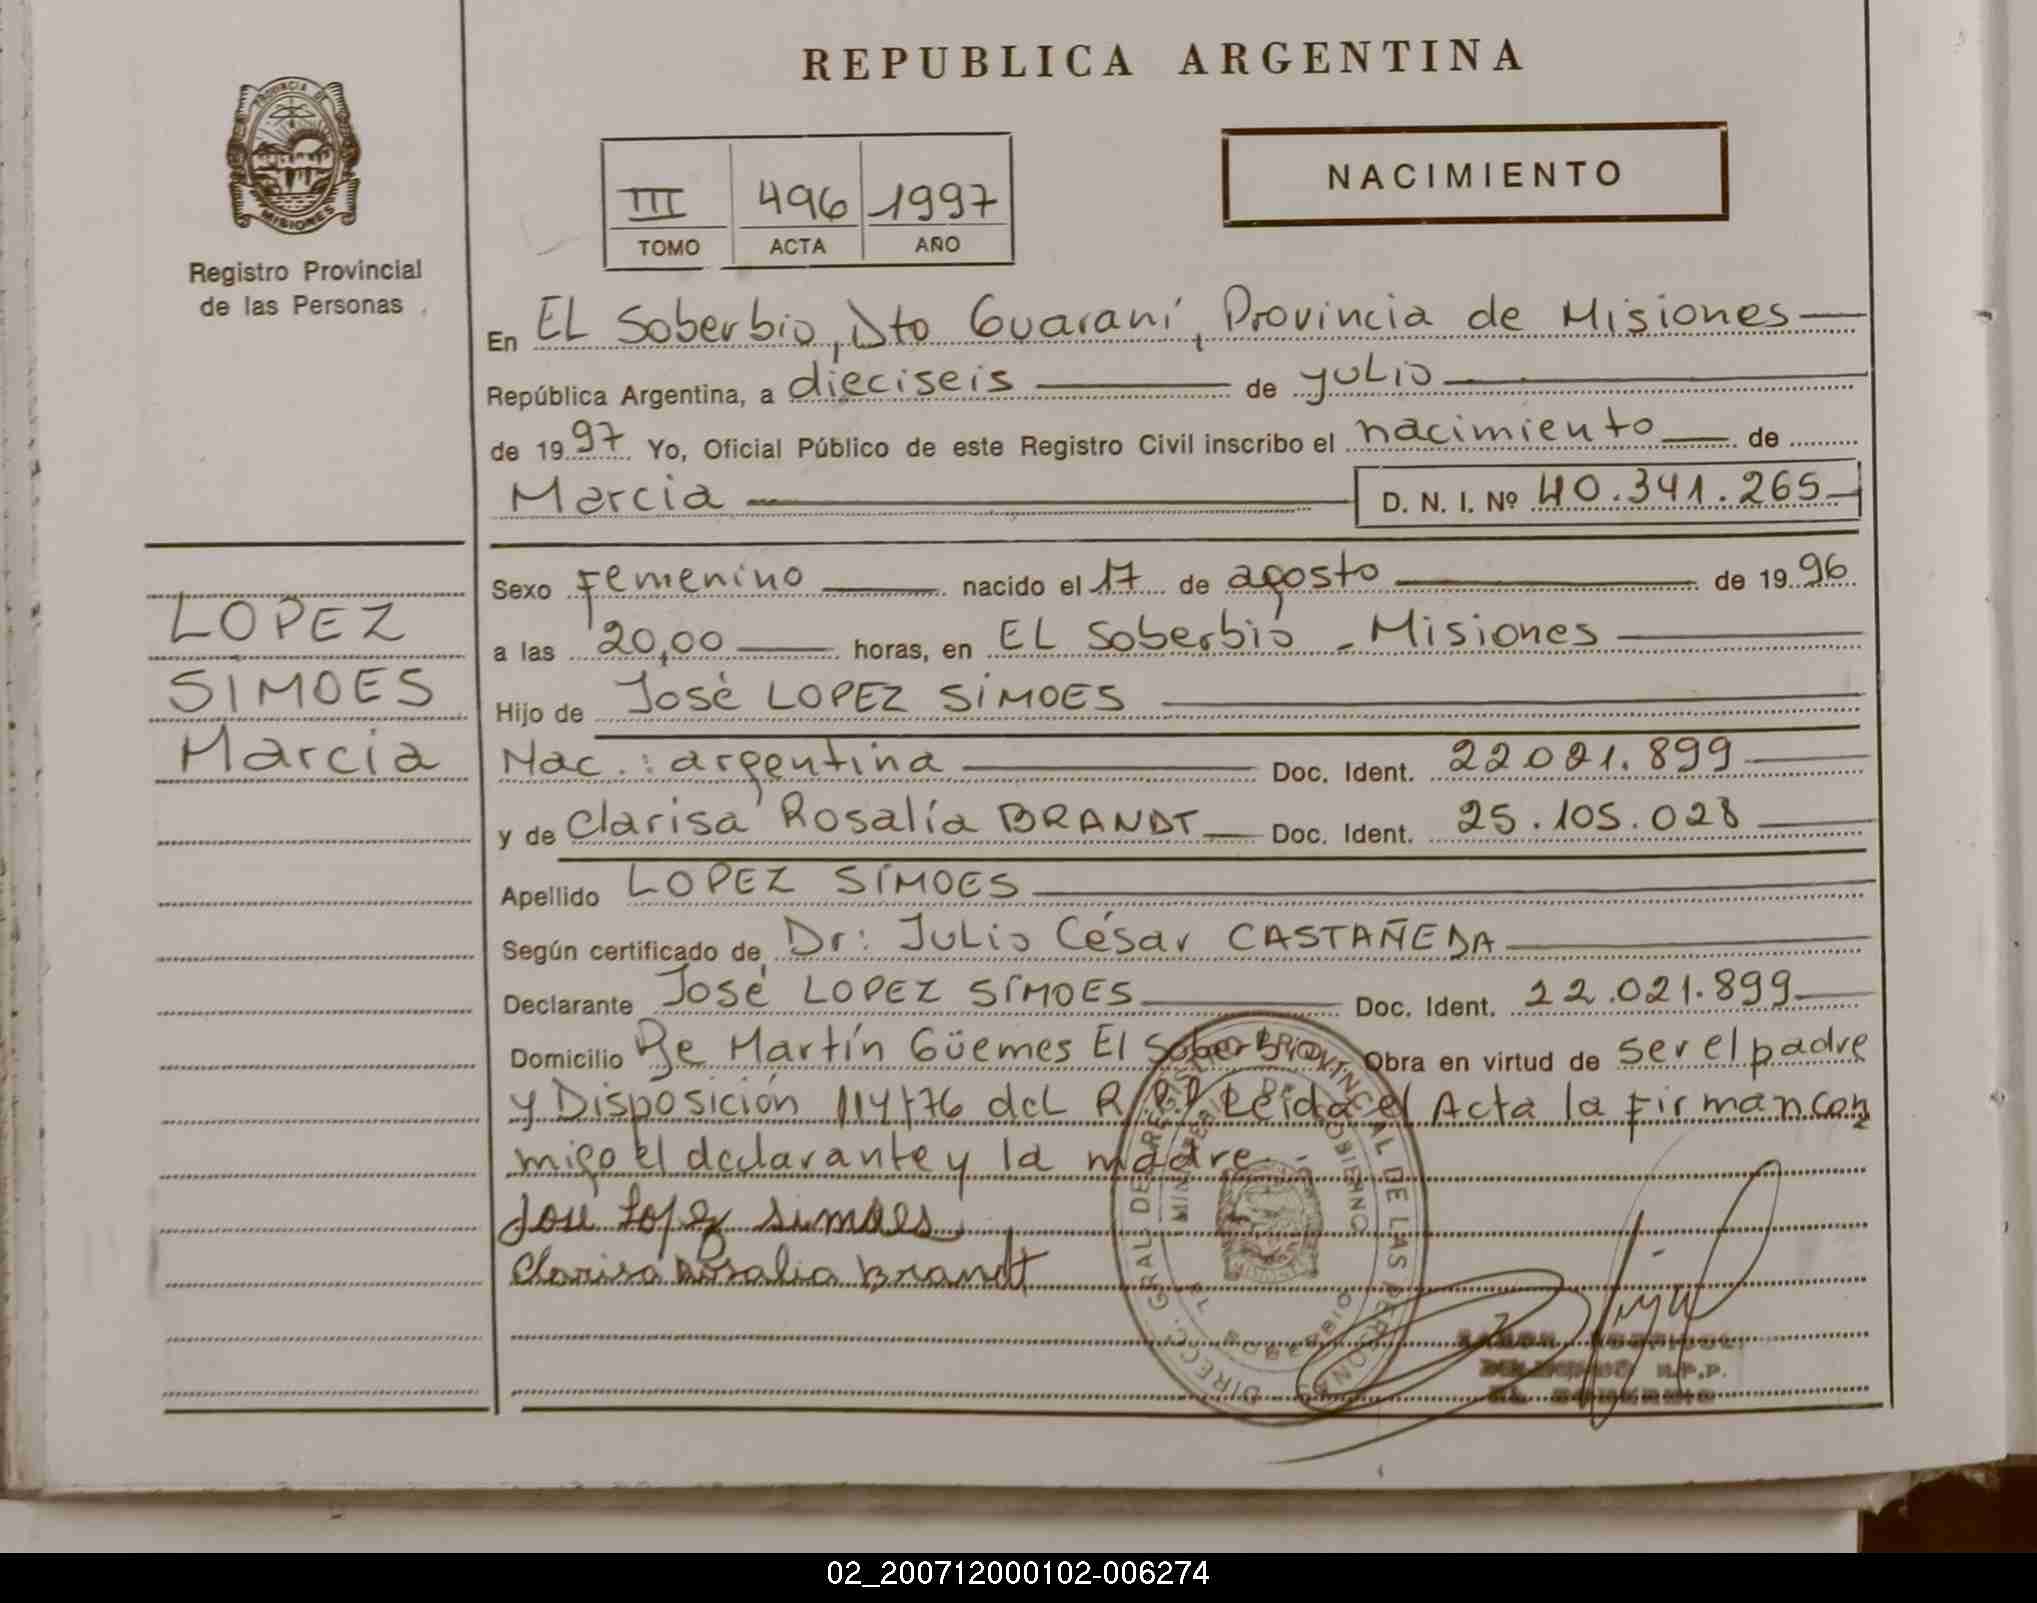 REPUBLICA ARGENTINA
PROVINCIA DE MISIONES
Registro Provincial
de las Personas
III 496 1997
TOMO ACTA AÑO
NACIMIENTO
En EL Soberbio, Dto Guaraní, Provincia de Misiones
República Argentina, a dieciseis de julio
de 1997 Yo, Oficial Público de este Registro Civil inscribo el nacimiento de
Marcia D. N. I. Nº 40.341.265
LOPEZ
SIMOES
Marcia
Sexo Femenino nacido el 17 de agosto de 1996
a las 20,00 horas, en EL Soberbio - Misiones
Hijo de José LOPEZ SIMOES
Nac.: argentina Doc. Ident. 22021.899
y de Clarisa Rosalía BRANDT Doc. Ident. 25.105.028
Apellido LOPEZ SIMOES
Según certificado de Dr: Julio César CASTAÑEDA
Declarante José LOPEZ SIMOES Doc. Ident. 22.021.899
Domicilio Pje Martín Güemes El Soberbio Obra en virtud de ser el padre
y Disposición 114/76 del R.P.P Leída el Acta la Firman con
migo el declarante y la madre.-
José Lopez Simoes
Clarisa Rosalia Brandt
DIRECC. GRAL. DE REGISTRO PROVINCIAL DE LAS PERSONAS
MINISTERIO DE GOBIERNO
SOBERBIO
R.P.P.
02_200712000102-006274